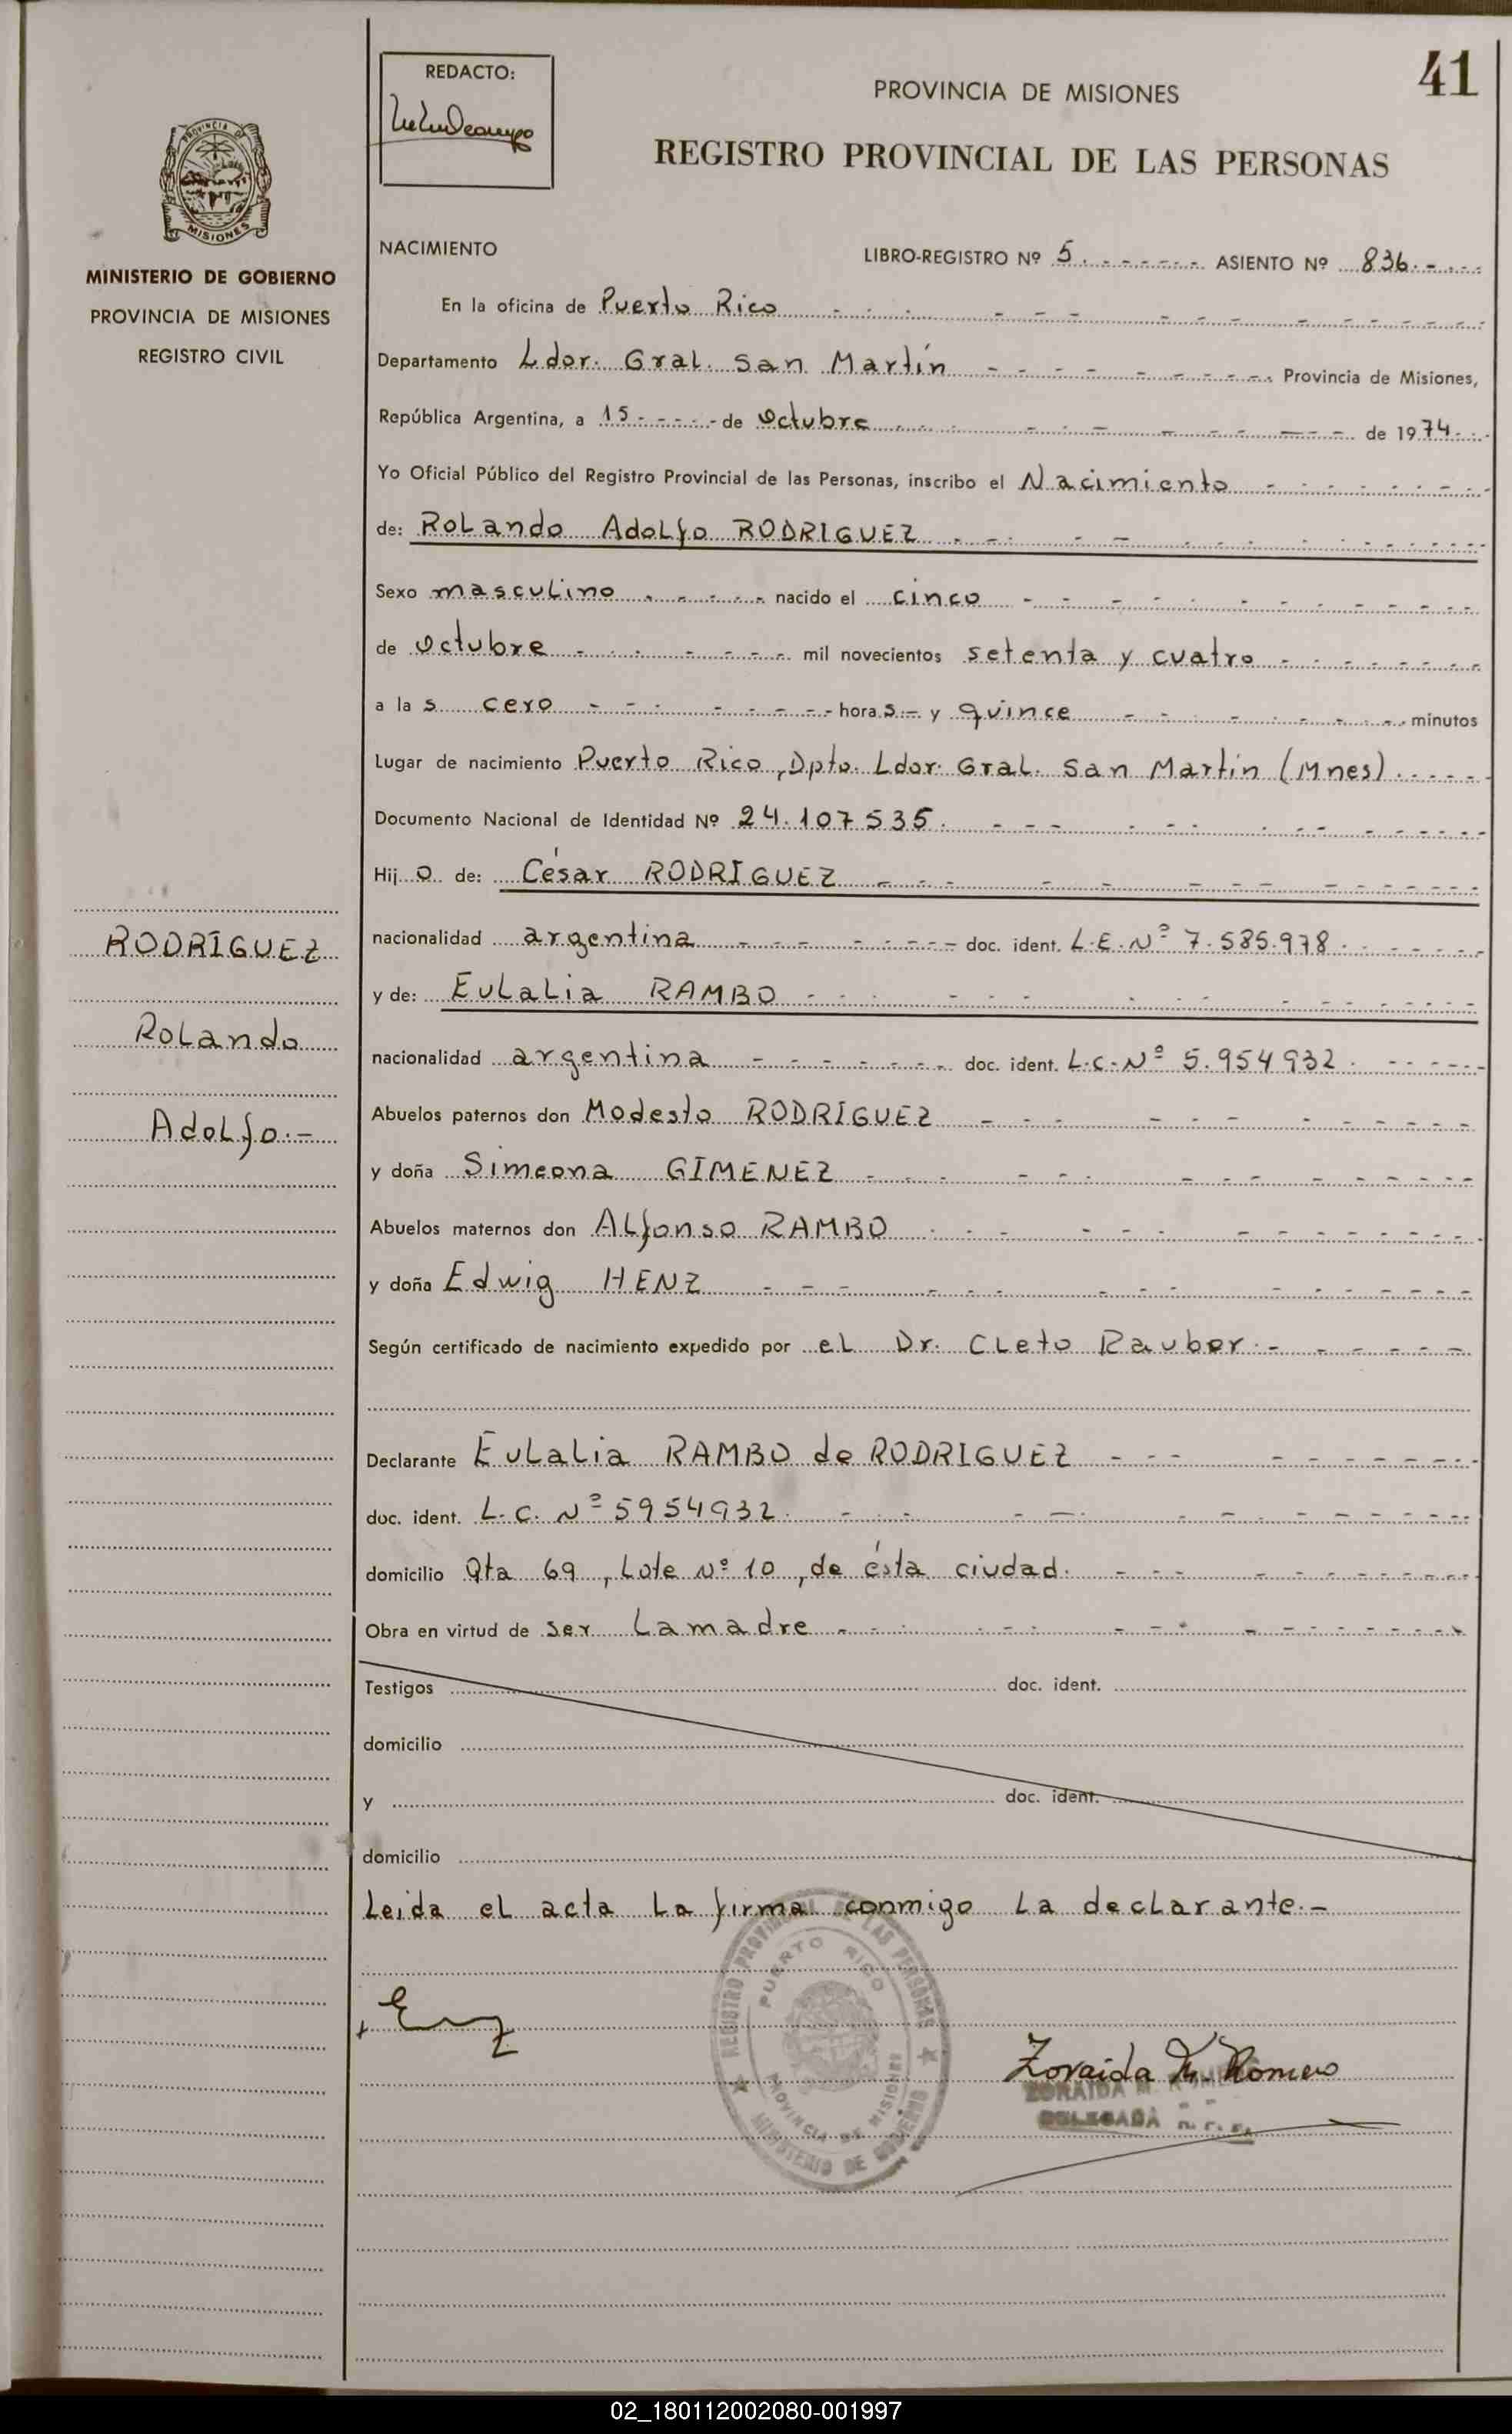 41
REDACTO:
PROVINCIA DE MISIONES
REGISTRO PROVINCIAL DE LAS PERSONAS
PROVINCIA DE
MISIONES
MINISTERIO DE GOBIERNO
PROVINCIA DE MISIONES
REGISTRO CIVIL
NACIMIENTO LIBRO-REGISTRO Nº 5. ASIENTO Nº 836.-
En la oficina de Puerto Rico
Departamento Ldor. Gral. San Martín Provincia de Misiones,
República Argentina, a 15 de Octubre de 1974.
Yo Oficial Público del Registro Provincial de las Personas, inscribo el Nacimiento
de: Rolando Adolfo RODRIGUEZ
Sexo masculino nacido el cinco
de Octubre mil novecientos setenta y cuatro
a la s cero hora s.- y quince minutos
Lugar de nacimiento Puerto Rico, Dpto. Ldor. Gral. San Martin (Mnes).
Documento Nacional de Identidad Nº 24.107535.
Hij o de: César RODRÍGUEZ
nacionalidad argentina doc. ident. L.E. Nº 7.585.978.
y de: Eulalia RAMBO
nacionalidad argentina doc. ident. L.C. Nº 5.954932.
Abuelos paternos don Modesto RODRÍGUEZ
y doña Simeona GIMENEZ
Abuelos maternos don Alfonso RAMBO
y doña Edwig HENZ
Según certificado de nacimiento expedido por el Dr. Cleto Rauber.-
Declarante Eulalia RAMBO de RODRIGUEZ
doc. ident. L.C. Nº 5954932.
domicilio Qta 69, Lote Nº 10, de ésta ciudad.
Obra en virtud de ser la madre
Testigos doc. ident.
domicilio
y doc. ident.
domicilio
Leida el acta la firma conmigo la declarante.-
RODRÍGUEZ
Rolando
Adolfo.-
REGISTRO PROVINCIAL DE LAS PERSONAS
PUERTO RICO
PROVINCIA DE MISIONES
MINISTERIO DE GOBIERNO
Zoraida M. Romero
ZORAIDA M. ROMERO
DELEGADA
02_180112002080-001997